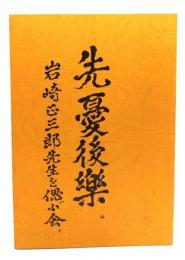 先憂後樂。
岩崎正三郎先生を偲ぶ会、